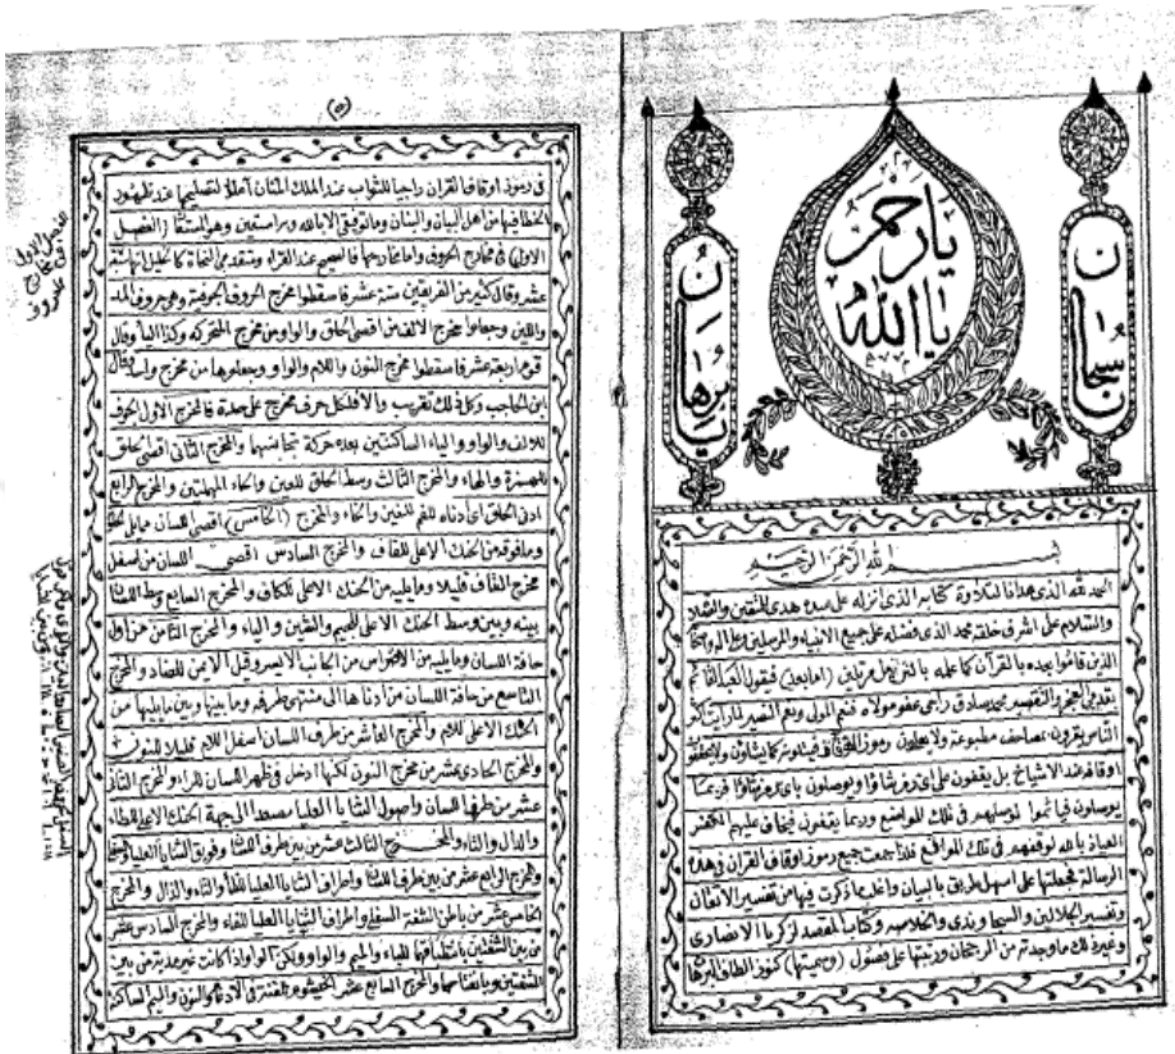 يا رحمن
يا الله
يا سبحان
يا برهان
بسم الله الرحمن الرحيم
الحمد لله الذى هدانا لتلاوة كتابه الذى انزله على عبده هدى للمتقين والصلاة
والسلام على اشرف خلقه محمد الذى فضله على جميع الانبياء والمرسلين وعلى اله وصحبه
الذين قاموا بعده بالقرآن كما علمه بالترتيل مرتلين (اما بعد) فيقول العبد القائم
بقدمى العجز والتقصير محمد صادق راجى عفو مولاه فنعم المولى ونعم النصير لما رايت اكثر
الناس يقرون بمصاحف مطبوعة ولا يعلمون رموز كما يشاؤن ولا
اوقافه عند الاشياخ بل يقفون على اى رمز شاؤا ويوصلون باى رمز شاؤا فربما
يوصلون فيأثموا لوصلهم فى تلك المواضع وربما يقفون فيخاف عليهم الكفر
العياذ بالله لوقفهم فى تلك المواقع فلذا جمعت جميع رموز اوقاف القران فى هذه
الرسالة فجعلتها على اسهل طريق بالبيان واغلب ما ذكرت فيها من تفسير الاتقان
وتفسير الجلالين والسجاوندى والخلاصة وكتاب المقصد لزكريا الانصارى
وغير ذلك ما وجدته من الرجحان ورتبتها على فصول (وسميتها) كنوز الطاف البرهان
(٥)
فى رموز اوقاف القران راجيا للثواب عند الملك المنان آملا لتصليحها عند ظهور
الخطا فيها من اهل البيان والبنان وما توفيقى الا بالله وبه استعين وهو المستعان الفصل
الاول فى مخارج الحروف واما مخارجها فالصحيح عند القراء ومتقدمى النحاة كالخليل انها سبعة
عشر وقال كثير من الفريقين ستة عشر فاسقطوا مخرج الحروف الجوفية وهى حروف المد
واللين وجعلوا مخرج الالف من اقصى الحلق والواو من مخرج المتحركة وكذا الياء وقال
قوم اربعة عشر فاسقطوا مخرج النون واللام والراء وجعلوها من مخرج واحد وقال
ابن الحاجب وكل ذلك تقريب والا فلكل حرف مخرج على حدة فالمخرج الاول الجوف
للالف والواو والياء الساكنتين بعد حركة تجانسهما والمخرج الثانى اقصى الحلق
للهمزة والهاء والمخرج الثالث وسط الحلق للعين والحاء المهملتين والمخرج الرابع
ادنى الحلق اى ادناه للفم للغين والخاء والمخرج (الخامس) اقصى اللسان مما يلى الحلق
وما فوقه من الحنك الاعلى للقاف والمخرج السادس اقصى اللسان من اسفل
مخرج القاف قليلا وما يليه من الحنك الاعلى للكاف والمخرج السابع وسط اللسان
بينه وبين وسط الحنك الاعلى للجيم والشين والياء والمخرج الثامن من اول
حافة اللسان وما يليه من الاضراس من الجانب الايسر وقيل الايمن للضاد والمخرج
التاسع من حافة اللسان من ادناها الى منتهى طرفه وما بينها وبين ما يليها من
الحنك الاعلى للام والمخرج العاشر من طرف اللسان اسفل اللام قليلا للنون
والمخرج الحادى عشر من مخرج النون لكنها ادخل فى ظهر اللسان للراء والمخرج الثانى
عشر من طرف اللسان واصول الثنايا العليا مصعدا الى جهة الحنك الاعلى للطاء
والدال والتاء والمخرج الثالث عشر من بين طرف اللسان وفويق الثنايا العليا
والمخرج الرابع عشر من بين طرف اللسان واطراف الثنايا العليا للظاء والثاء والذال والمخرج
الخامس عشر من باطن الشفة السفلى واطراف الثنايا العليا للفاء والمخرج السادس عشر
من بين الشفتين بانطباقهما للباء والميم والواو ولكن الواو اذا كانت غير مدية من بين
الشفتين وبانفتاحهما والمخرج السابع عشر الخيشوم للغنة فى الادغام والنون والميم الساكنة
الفصل الاول
فى مخارج
الحروف